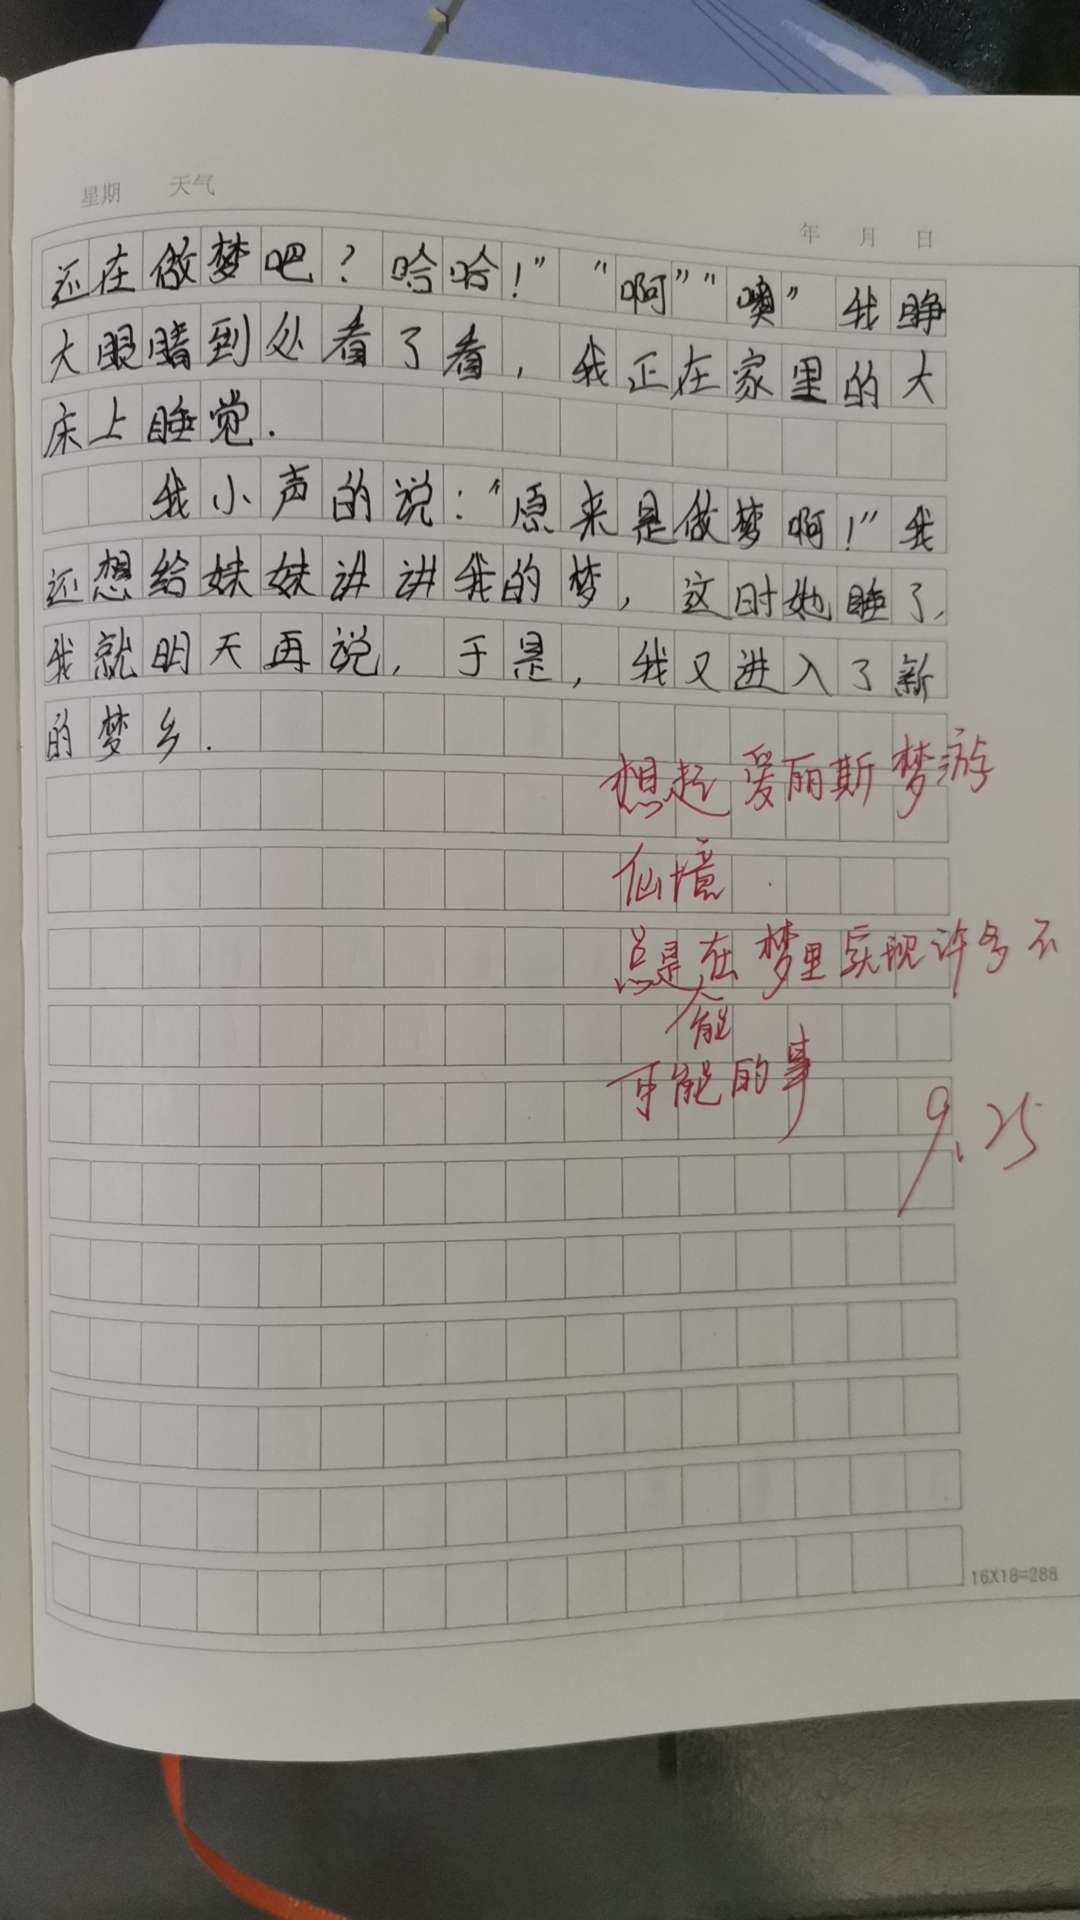 星期 天气
年 月 日
还在做梦吧？哈哈！”“啊”“噢”我睁
大眼睛到处看了看，我正在家里的大
床上睡觉.
我小声的说：“原来是做梦啊！”我
还想给妹妹讲讲我的梦，这时她睡了，
我就明天再说，于是，我又进入了新
的梦乡.
想起爱丽斯梦游
仙境
总是在梦里实现许多不
能
可能的事
9.25
16X18=288